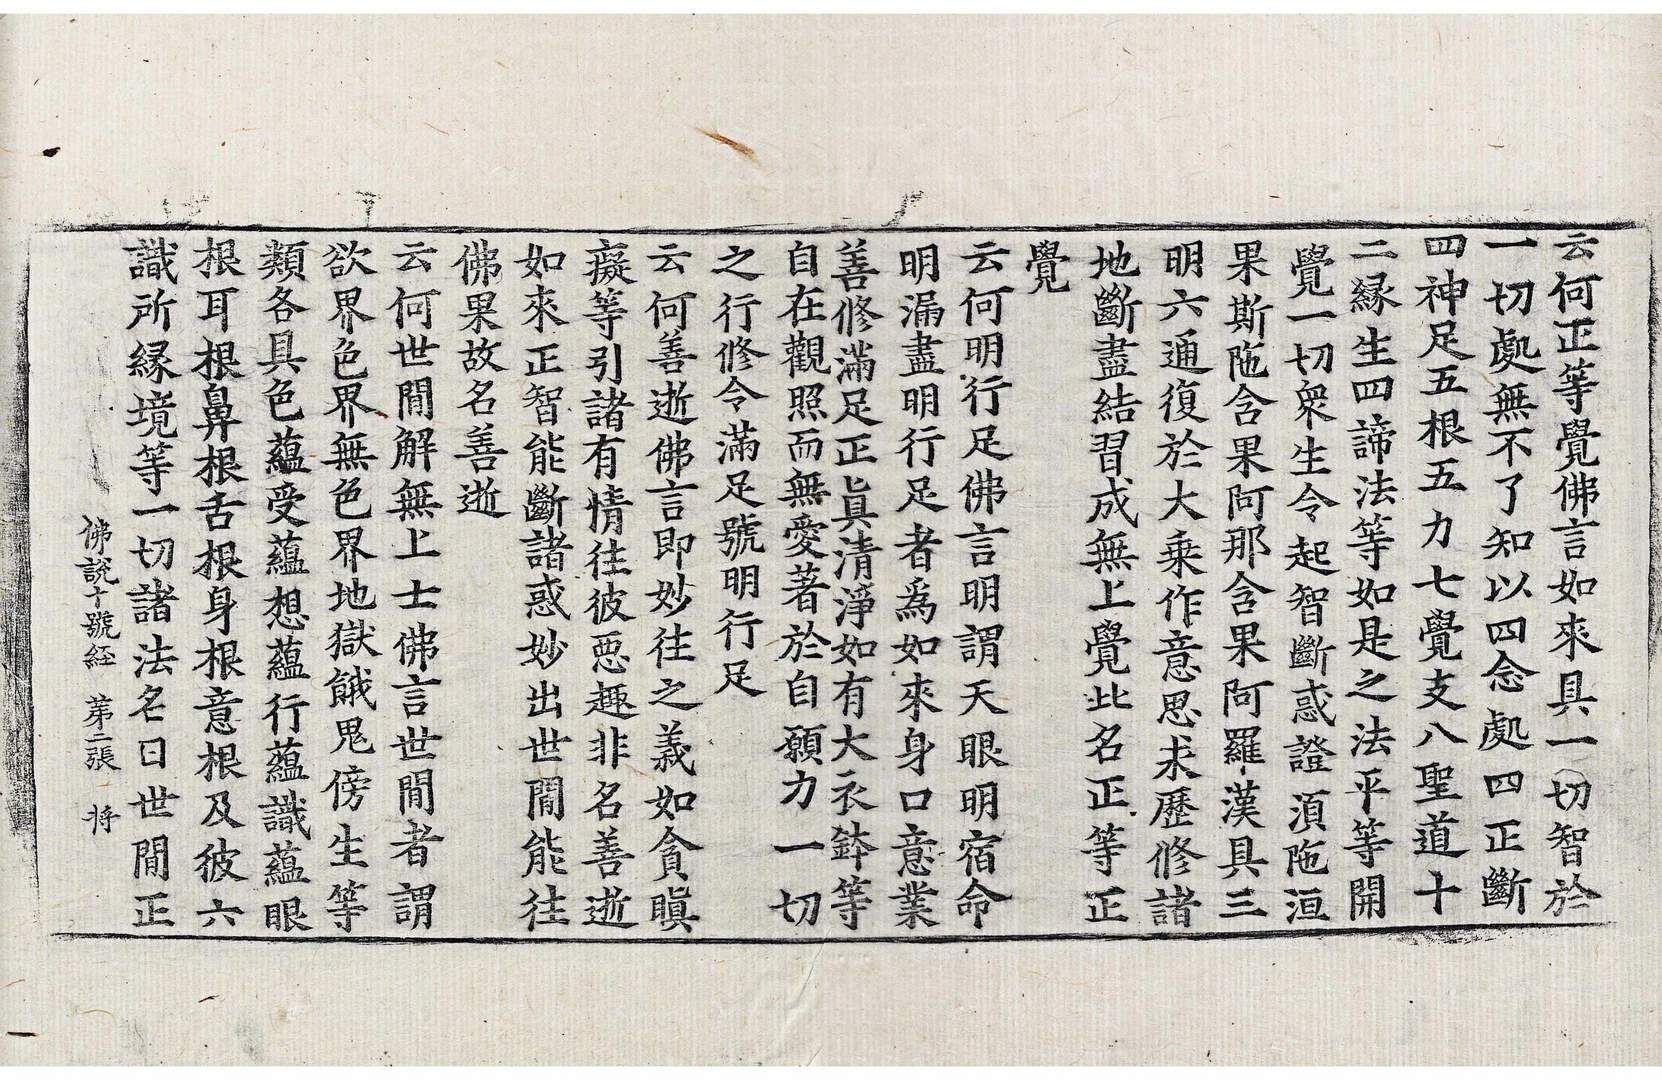 云何正等覺佛言如來具一切智於
一切處無不了知以四念處四正斷
四神足五根五力七覺支八聖道十
二縁生四諦法等如是之法平等開
覺一切衆生令起智斷惑證湏陁洹
果斯陁含果阿那含果阿羅漢具三
明六通復於大乘作意思求歷修諸
地斷盡結習成無上覺此名正等正
覺
云何明行足佛言明謂天眼明宿命
明漏盡明行足者爲如來身口意業
善修滿足正眞清淨如有大衣鉢等
自在觀照而無愛著於自願力一切
之行修令滿足號明行足
云何善逝佛言即妙往之義如貪瞋
癡等引諸有情往彼惡趣非名善逝
如來正智能斷諸惑妙出世閒能往
佛果故名善逝
云何世閒解無上士佛言世閒者謂
欲界色界無色界地獄餓鬼傍生等
類各具色蘊受蘊想蘊行蘊識蘊眼
根耳根鼻根舌根身根意根及彼六
識所縁境等一切諸法名曰世閒正
佛說十號経 苐二張 将